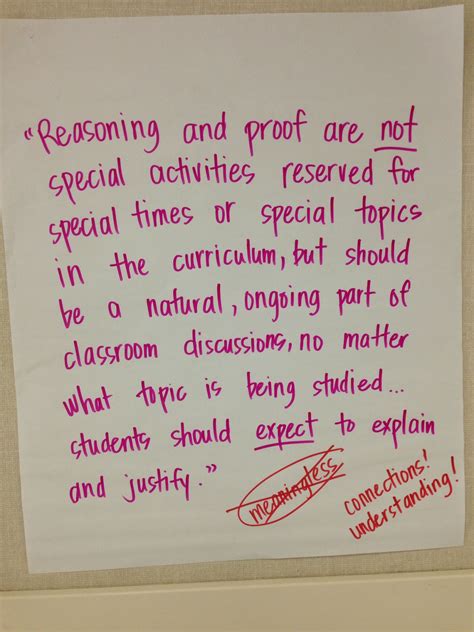 "Reasoning and proof are not
special activities reserved for
special times or special topics
in the curriculum, but should
be a natural, ongoing part of
classroom discussions, no matter
what topic is being studied...
students should expect to explain
and justify."
meaningless
connections!
understanding!